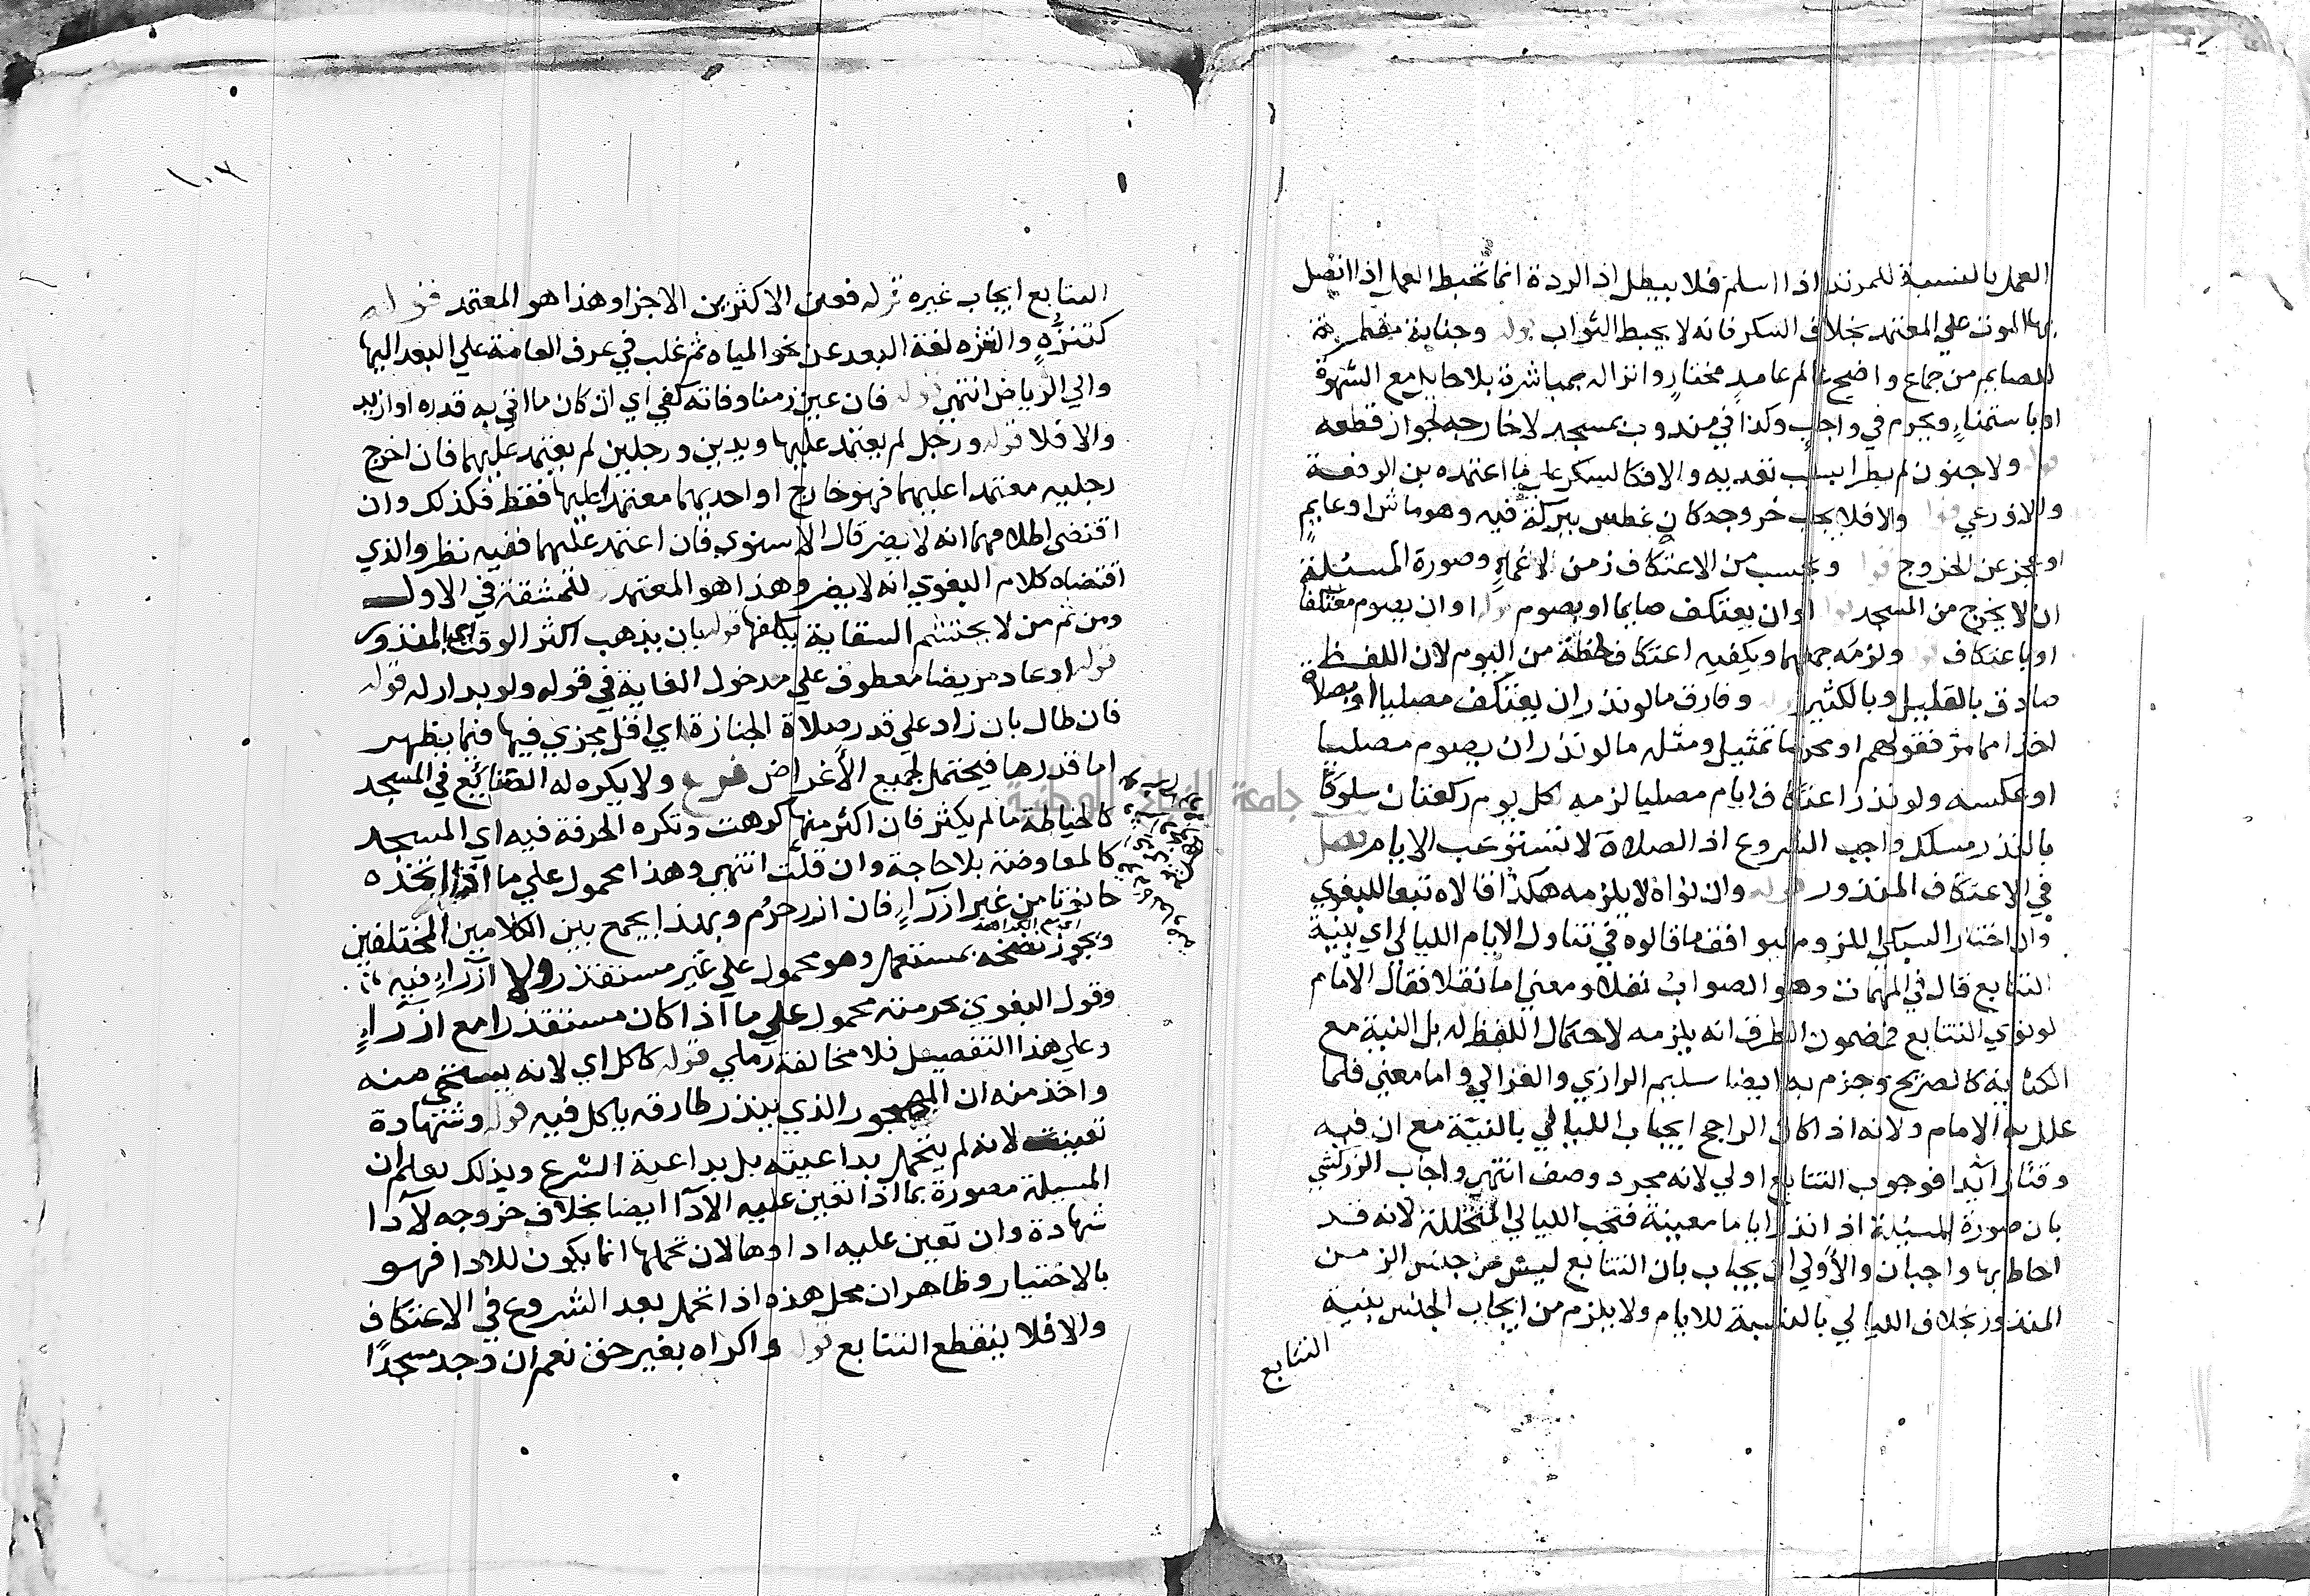 العمل بالنسبة للمرتد اذا اسلم فلا يبطل اذ الردة انما تحبط العمل اذا اتصل
بها الموت علي المعتمد بخلاف السكر فانه لا يحبط الثواب قوله وجنابة مفطرة
للصايم من جماع واضح عالم عامد مختار وانزاله بمباشرة بلا حايل مع الشهوة
او باستمناء ويحرم في واجب وكذا في مندوب بمسجد لا خارجه لجواز قطعه
قوله ولا جنون لم يطرا بسبب تعديه والا فكالسكر علي ما اعتمده بن الرفعة
والاذرعي قوله والا فلا يجب خروجه كان غطس ببركة فيه وهو ماش او عايم
او عجز عن الخروج قوله ويحسب من الاعتكاف زمن الاغماء وصورة المسئلة
ان لا يخرج من المسجد قوله او ان يعتكف صايما او يصوم قوله او ان يصوم معتكفا
او باعتكاف قوله ولزمه جمعهما ويكفيه اعتكاف لحظة من اليوم لان اللفظ
صادق بالقليل وبالكثير وفارق ما لو نذر ان يعتكف مصليا او بصلاة
اخذا مما مر فقولهم او محرما تمثيل ومثله ما لو نذر ان يصوم مصليا
او عكسه ولو نذر اعتكاف ايام مصليا لزمه لكل يوم ركعتان سلوكا
بالنذر مسلك واجب الشروع اذ الصلاة لا تستوعب الايام فصل
في الاعتكاف المنذور قوله وان نواه لا يلزمه هكذا قالاه تبعا للبغوي
وان اختار السبكي اللزوم ليوافق ما قالوه في تناول الايام الليالي اي بنية
التتابع قال في المهمات وهو الصواب نقلا ومعني اما نقلا فقال الامام
لو نوي التتابع فمضمون الطرق انه يلزمه لاحتمال اللفظ له بل النية مع
الكناية كالصريح وجزم به ايضا سليم الرازي والغزالي واما معني فلما
علل به الامام ولانه اذا كان الراجح ايجاب الليالي بالنية مع ان فيه
وقتا زائدا فوجوب التتابع اولي لانه مجرد وصف انتهي واجاب الزركشي
بان صورة المسئلة اذا نذر اياما معينة فتجب الليالي المتخللة لانه قد
احاط بها واجبان والأولي ان يجاب بان التتابع ليس من جنس الزمن
المنذور بخلاف الليالي بالنسبة للايام ولا يلزم من ايجاب الجنس بنية
التتابع
١٠٣
التتابع ايجاب غيره قوله فعن الاكثرين الاجزا وهذا هو المعتمد قوله
كتنزه والتنزه لغة البعد عن نحو المياه ثم غلب في عرف العامة علي البعد اليها
والي الرياض انتهي قوله فان عين زمنا وفاته كفي اي ان كان ما اتي به قدره او ازيد
والا فلا قوله ورجل لم يعتمد عليها ويدين ورجلين لم يعتمد عليهما فان اخرج
رجليه معتمدا عليهما فهو خارج او احديهما معتمدا عليها فقط فكذلك وان
اقتضي اطلاقهما انه لا يضر قال الاسنوي فان اعتمد عليهما ففيه نظر والذي
اقتضاه كلام البغوي انه لا يضر وهذا هو المعتمد للمشقة في الاول
ومن ثم من لا يحتشم السقاية يكلفها قوله بان يذهب اكثر الوقت المنذور
قوله او عاد مريضا معطوف علي مدخول الغاية في قوله ولو بدار له قوله
فان طال بان زاد علي قدر صلاة الجنازة اي اقل مجزي فيها فيما يظهر
اما قدرها فيحتمل لجميع الأغراض فرع ولا يكره له الصنائع في المسجد
كالخياطة ما لم يكثر فان اكثر منها كرهت وتكره الحرفة فيه اي المسجد
كالمعاوضة بلا حاجة وان قلت انتهي وهذا محمول علي ما اذا اتخذه
حانوتا من غير ازراء فان ازر حرم وبهذا يجمع بين الكلامين المختلفين
ويجوز نضحه بمستعمل وهو محمول علي غير مستقذر ولا ازراء فيه
وقول البغوي بحرمته محمول علي ما اذا كان مستقذرا مع ازراء
وعلي هذا التفصيل فلا مخالفة رملي قوله كاكل اي لانه يستحي منه
واخذ منه ان المهجور الذي يندر طارقه ياكل فيه قوله وشهادة
تعينت لانه لم يتحمل بداعيته بل بداعية الشرع وبذلك يعلم ان
المسيلة مصورة بما اذا تعين عليه الآدا ايضا بخلاف خروجه لآدا
شهادة وان تعين عليه اداوها لان تحملها انما يكون للادا فهو
بالاختيار وظاهر ان محل هذه اذا تحمل بعد الشروع في الاعتكاف
والا فلا ينقطع التتابع قوله واكراه بغير حق نعم ان وجد مسجدا
جامعة الوطنية